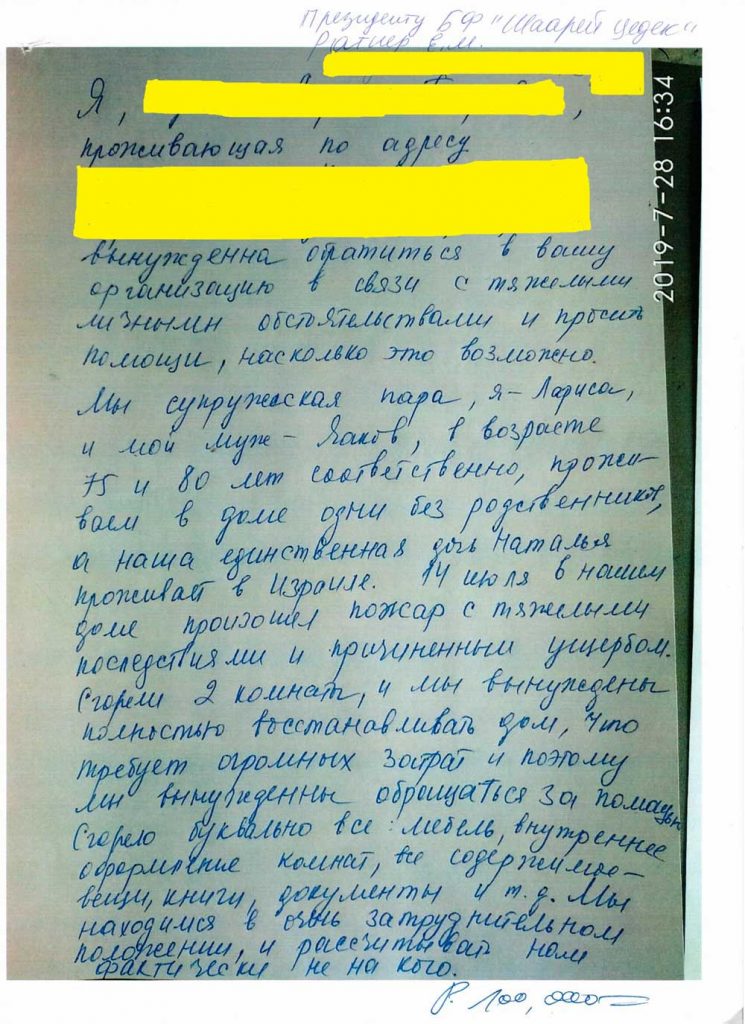 Президенту БФ "Шаарей Цедек"
Ратнер Е.М.
Я,
проживающая по адресу
вынужденна обратиться в вашу
организацию в связи с тяжелыми
личными обстоятельствами и просить
помощи, насколько это возможно.
Мы супружеская пара, я - Лариса,
и мой муж - Яаков, в возрасте
75 и 80 лет соответственно, прожи-
ваем в доме одни без родственников,
а наша единственная дочь Наталья
проживает в Израиле. 14 июля в нашем
доме произошел пожар с тяжелыми
последствиями и причиненным ущербом.
Сгорели 2 комнаты, и мы вынуждены
полностью восстанавливать дом, что
требует огромных затрат и поэтому
мы вынужденны обращаться за помощью
Сгорело буквально все: мебель, внутреннее
оформление комнат, все содержимое -
вещи, книги, документы и т.д. Мы
находимся в очень затруднительном
положении, и рассчитывать нам
фактически не на кого.
2019-7-28 16:34
Р. 100,000